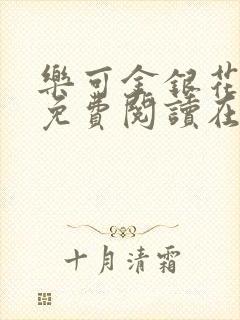 樂可金銀花
免費閱讀在
十月清霜